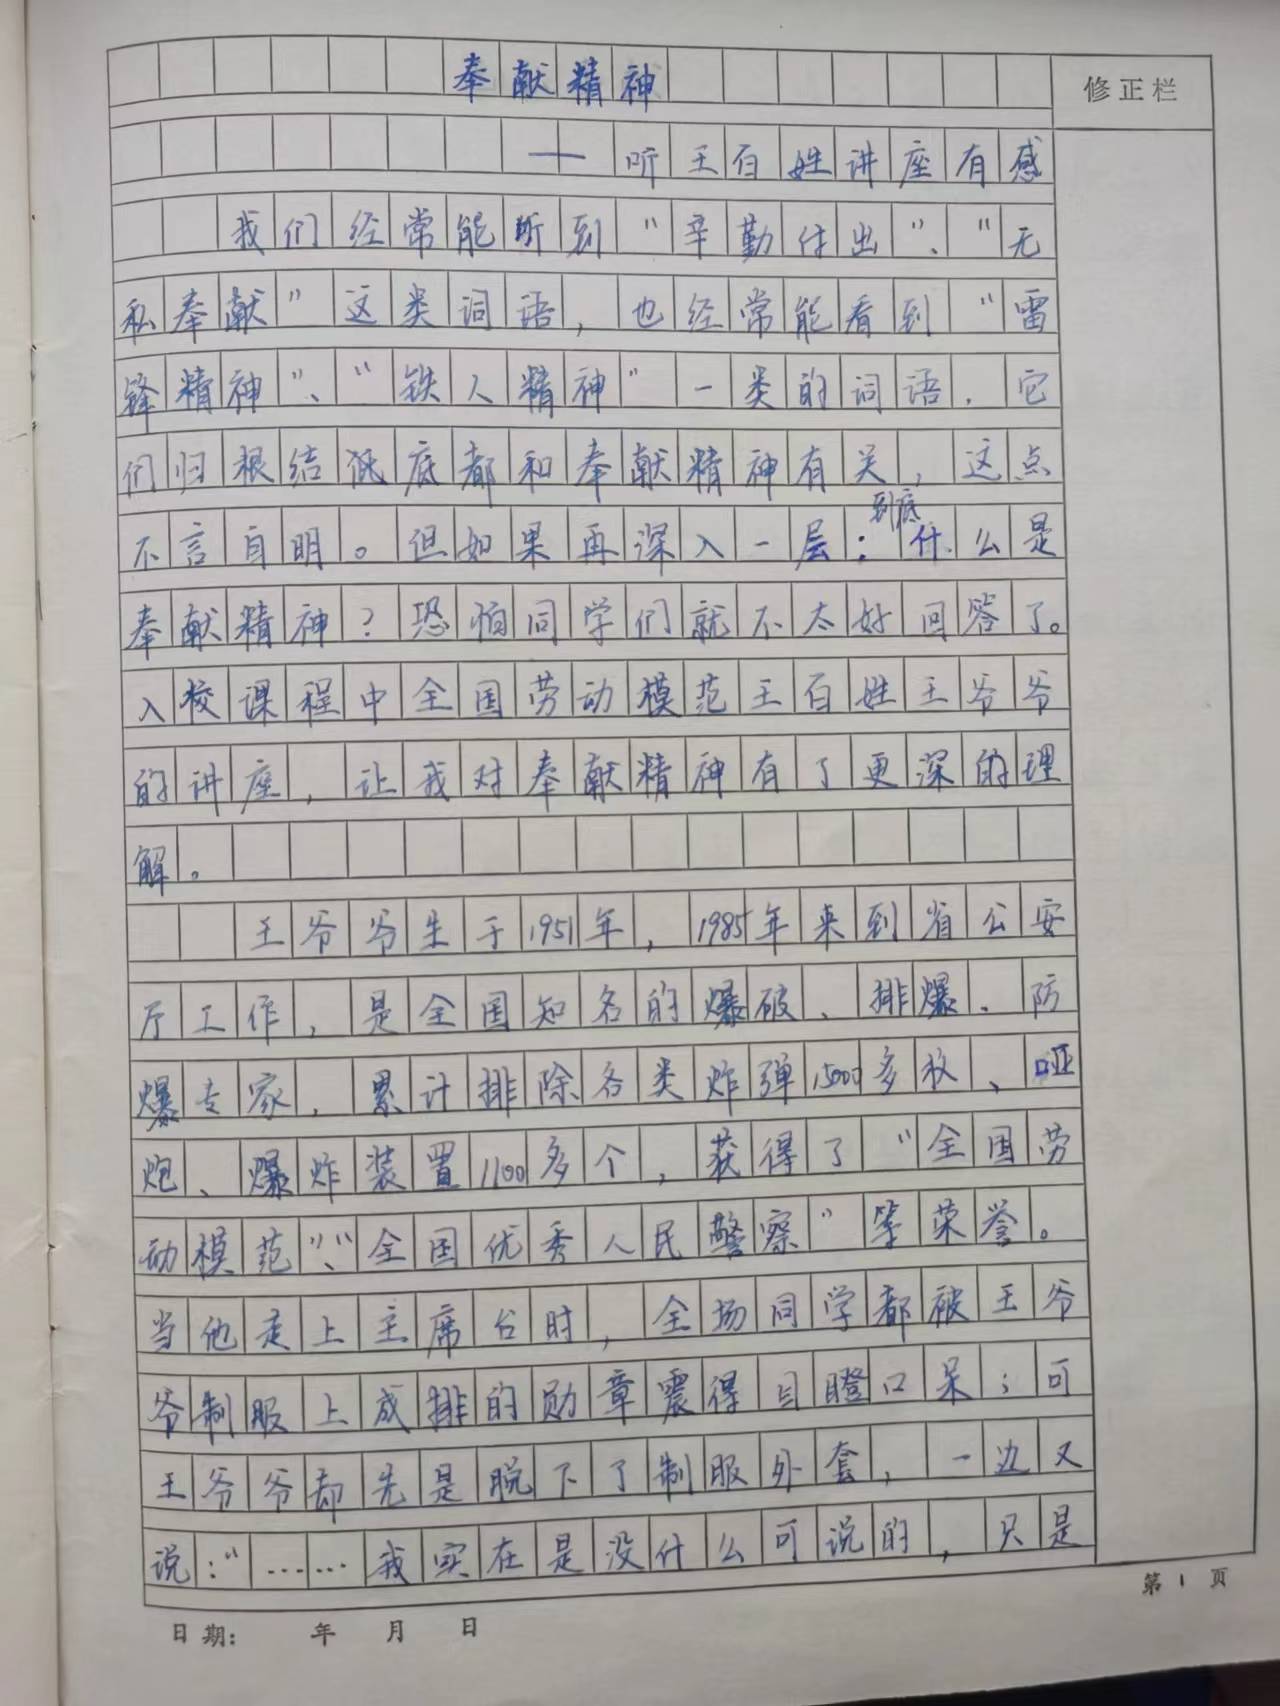 奉献精神
修正栏
——听王百姓讲座有感
我们经常能听到“辛勤付出”、“无
私奉献”这类词语，也经常能看到“雷
锋精神”、“铁人精神”一类的词语．它
们归根结低底都和奉献精神有关，这点
不言自明。但如果再深入一层：到底什么是
奉献精神？恐怕同学们就不太好回答了。
入校课程中全国劳动模范王百姓王爷爷
的讲座，让我对奉献精神有了更深的理
解。
王爷爷生于1951年，1985年来到省公安
厅工作，是全国知名的爆破、排爆、防
爆专家，累计排除各类炸弹15000多枚、哑
炮、爆炸装置1100多个，获得了“全国劳
动模范”、“全国优秀人民警察”等荣誉。
当他走上主席台时，全场同学都被王爷
爷制服上成排的勋章震得目瞪口呆；可
王爷爷却先是脱下了制服外套，一边又
说：“……我实在是没什么可说的，只是
第1页
日期： 年 月 日